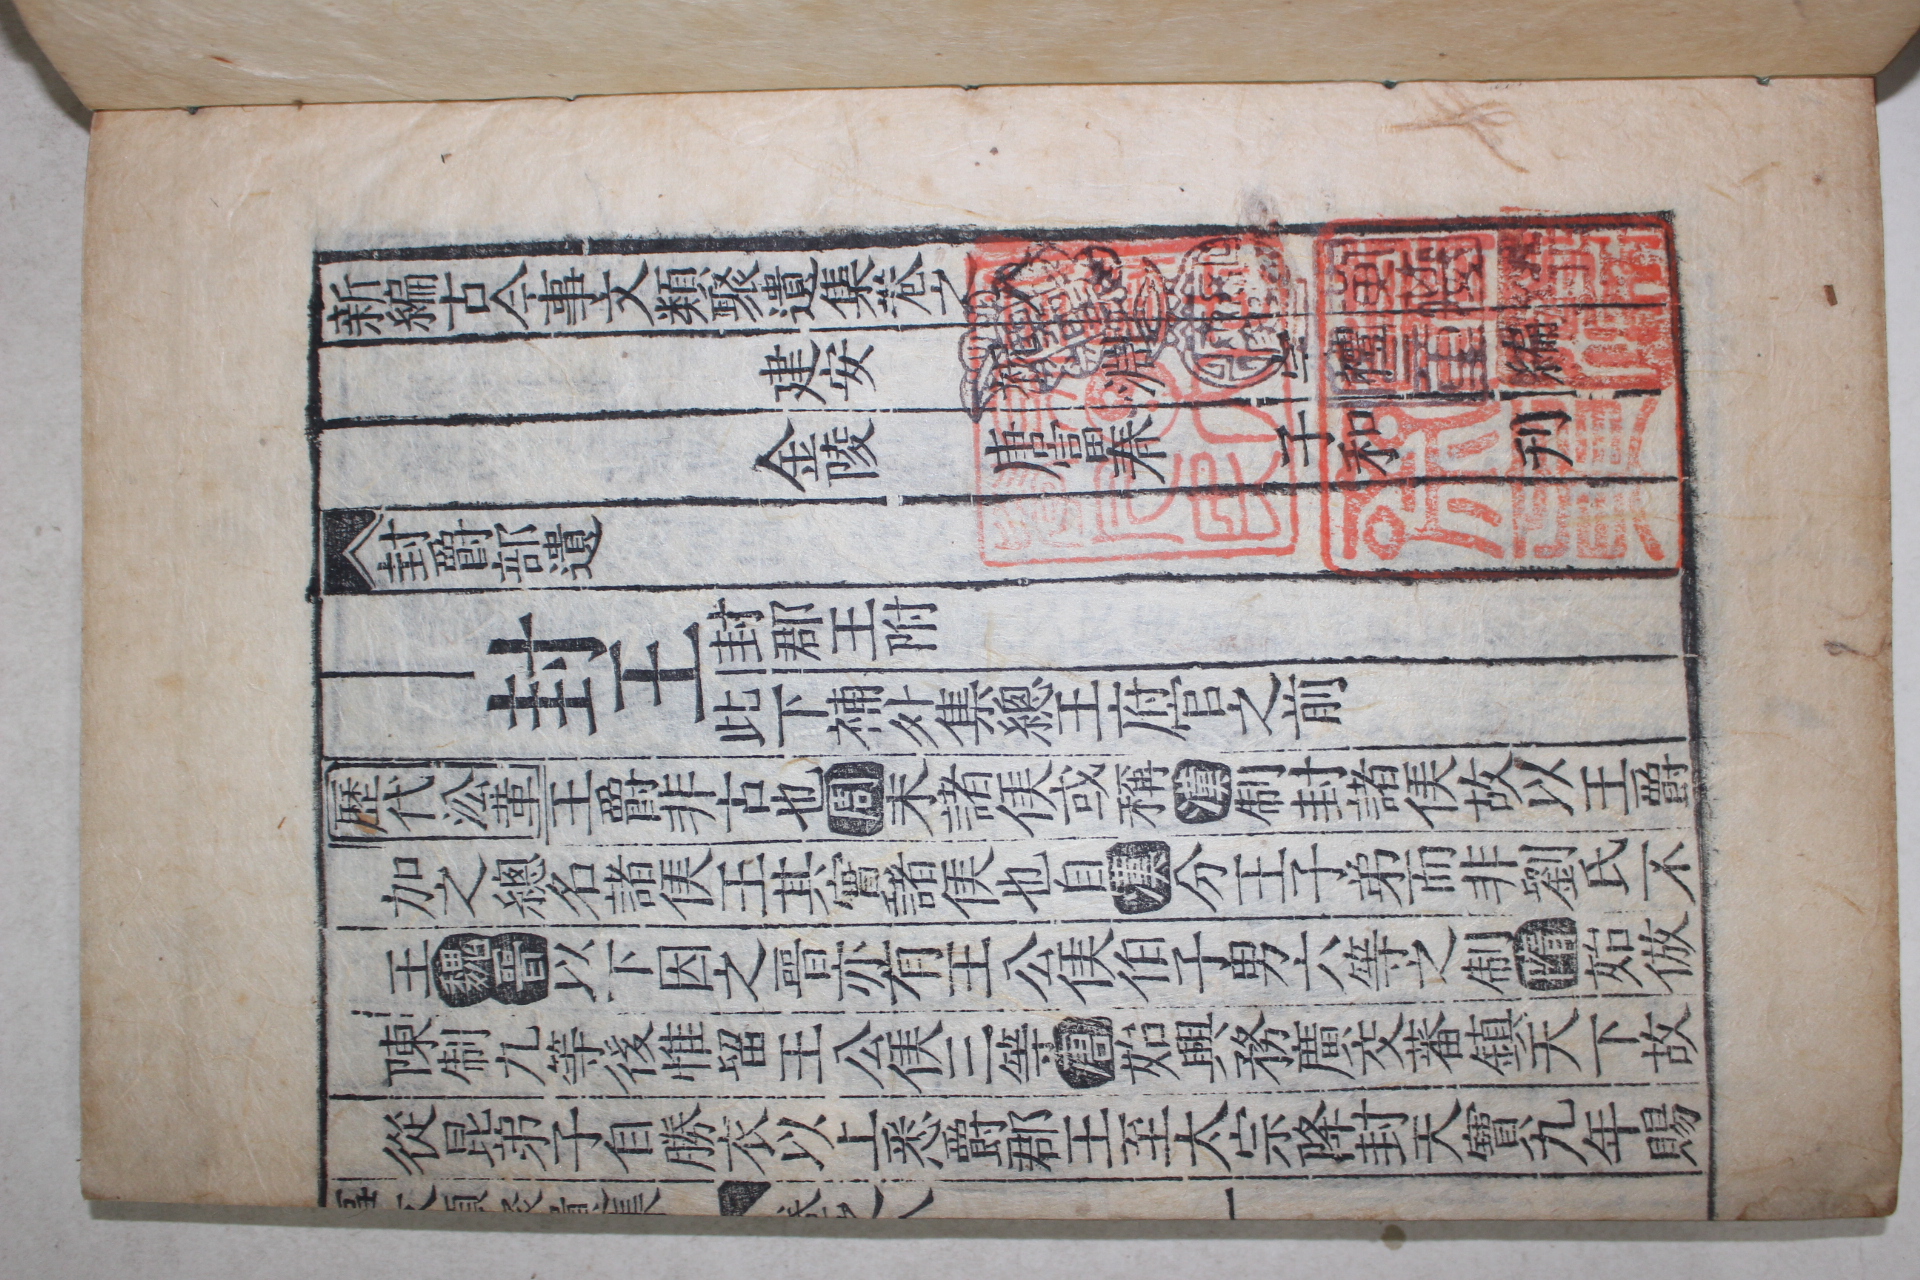 新編古今事文類聚遺集卷之八
建安 祝淵 宗禮 編
金陵 唐富春 子和 刊
封爵部遺
封王 封郡王附
此下補外集總王府官之前
歷代㳂革王爵非古也周末諸侯或稱漢制封諸侯故以王爵
加之總名諸侯王其實諸侯也自漢分王子弟而非劉氏不
王魏晉以下因之晋亦有王公侯伯子男六等之制隋始倣
陳制九等後惟留王公侯三等唐始興務廣支蕃鎮天下故
從昆弟子自勝衣以上悉爵郡王至太宗降封天寶九年賜